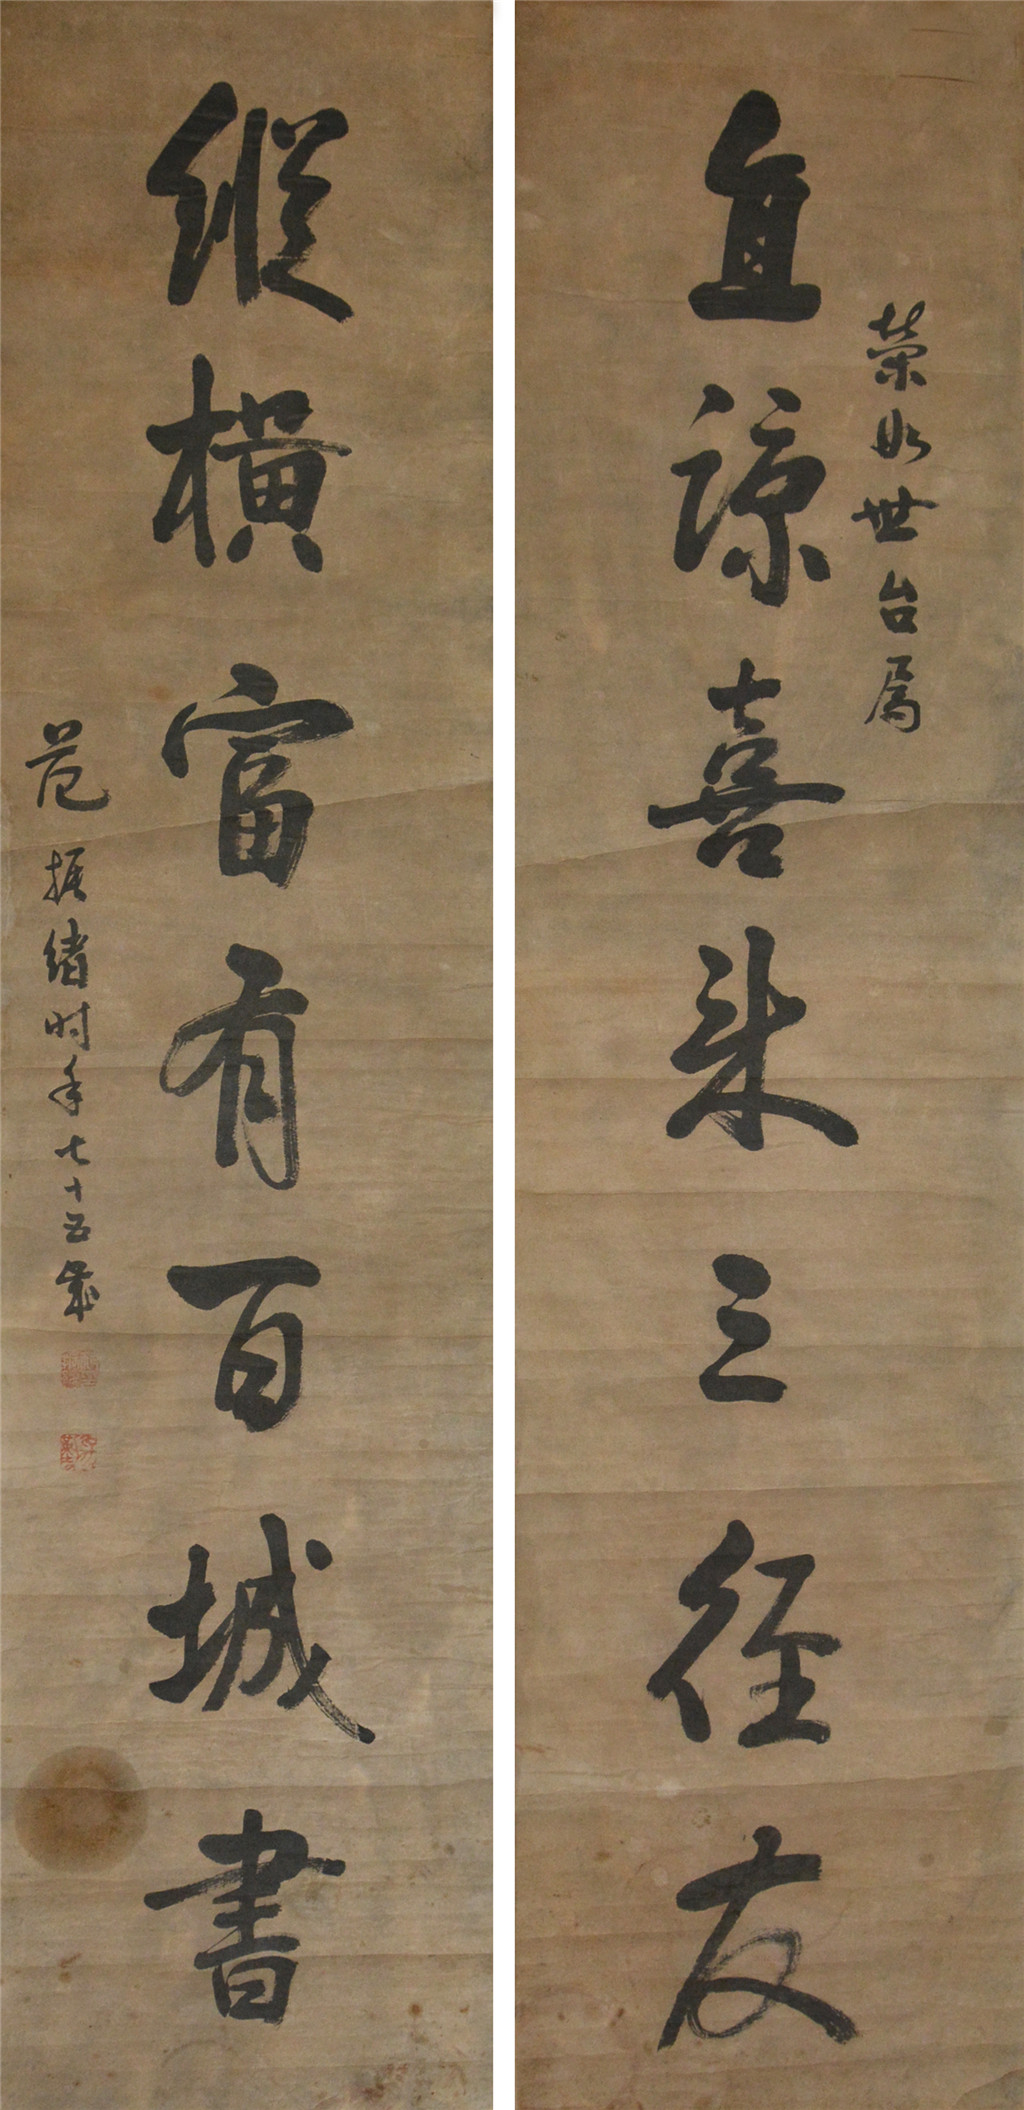 榮如世台属
直諒喜來三徑友
縱橫富有百城書
范振緒时年七十五歲